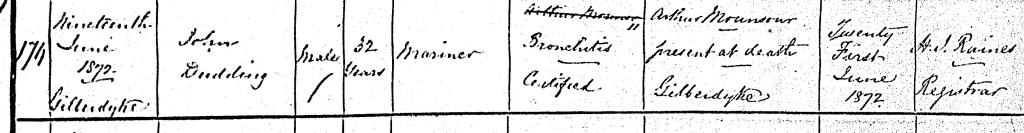 174
Nineteenth
June
1872
Gilberdyke
John
Dudding
Male
32
Years
Mariner
Arthur Mounsour
Bronchitis "
Certified
Arthur Mounsour
present at death
Gilberdyke
Twenty
First
June
1872
H. I. Raines
Registrar